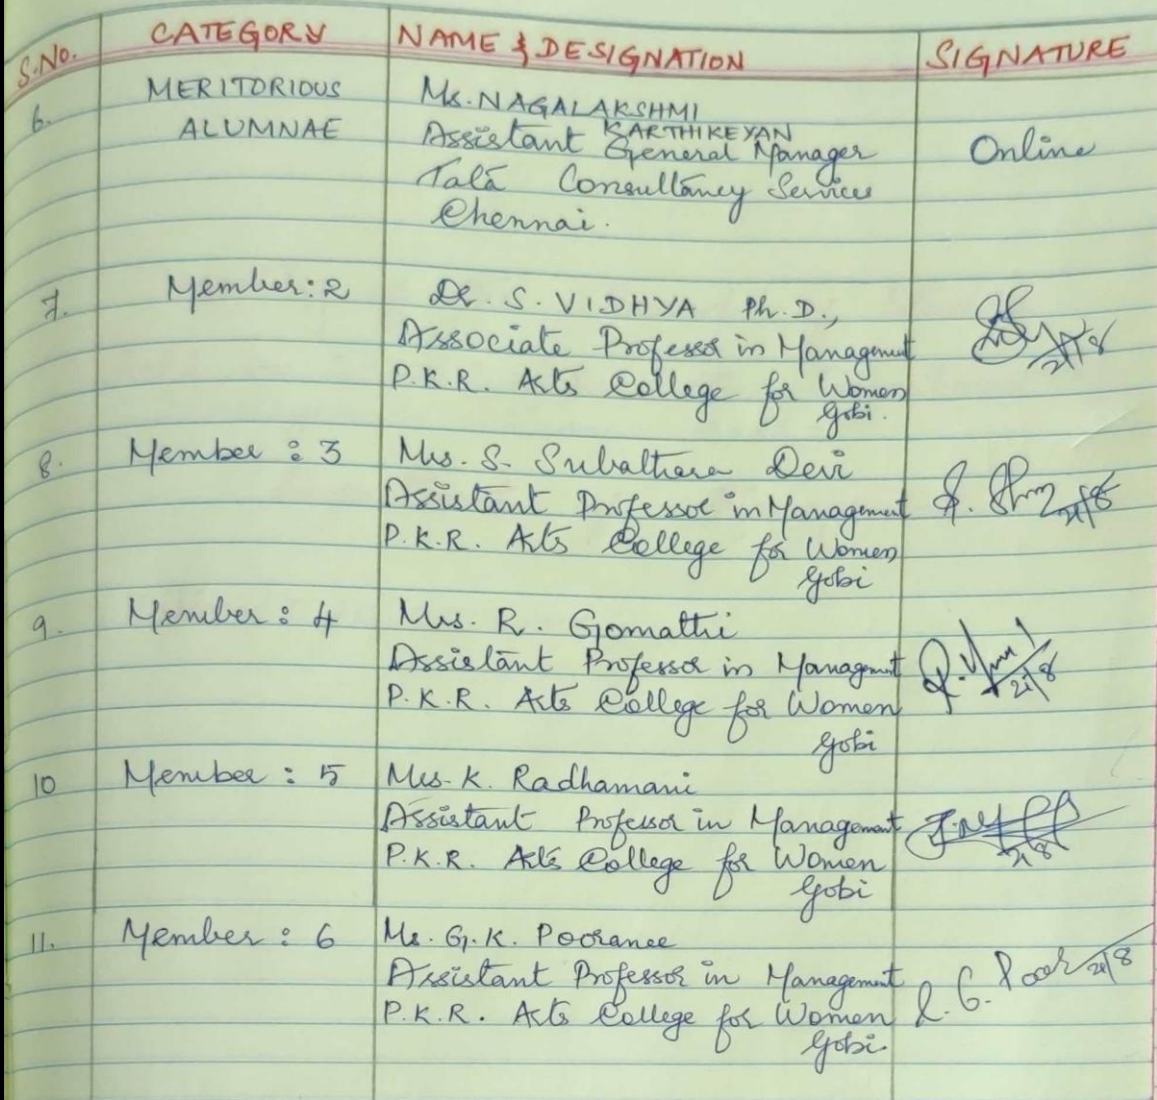 S.No. CATEGORY NAME & DESIGNATION SIGNATURE
6. MERITORIOUS Ms. NAGALAKSHMI
ALUMNAE KARTHIKEYAN
Assistant General Manager Online
Tata Consultancy Services
Chennai.
7. Member: 2 Dr. S. VIDHYA Ph.D.,
Associate Professor in Management 21/8
P.K.R. Arts College for Women
Gobi.
8. Member : 3 Mrs. S. Devi
Assistant Professor in Management S. 21/8
P.K.R. Arts College for Women
Gobi
9. Member : 4 Mrs. R. Gomathi
Assistant Professor in Management R. 21/8
P.K.R. Arts College for Women
Gobi
10 Member : 5 Mrs. K. Radhamani
Assistant Professor in Management 21/8
P.K.R. Arts College for Women
Gobi
11. Member : 6 Ms. G.K. Pooranee
Assistant Professor in Management 21/8
P.K.R. Arts College for Women G.
Gobi.